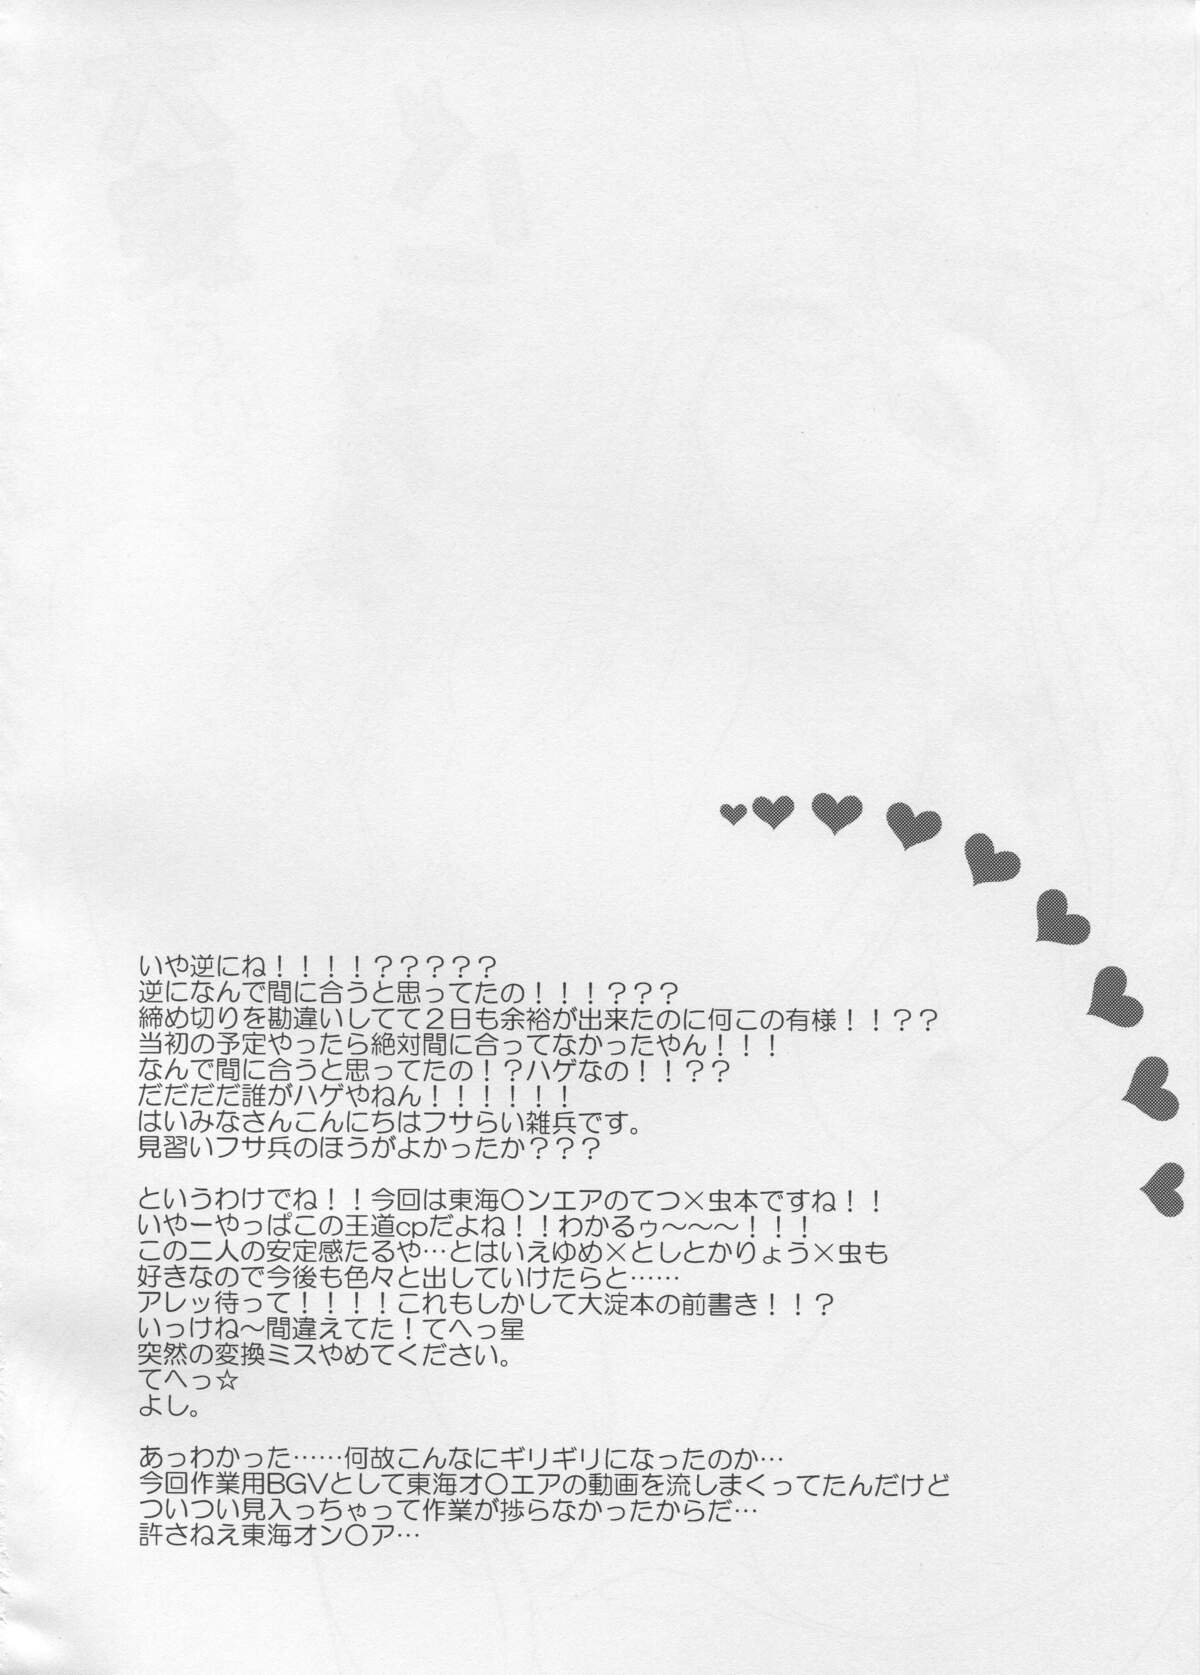 いや逆にね！！！！？？？？？
逆になんで間に合うと思ってたの！！！？？？
締め切りを勘違いしてて２日も余裕が出来たのに何この有様！！？？
当初の予定やったら絶対間に合ってなかったやん！！！
なんで間に合うと思ってたの！？ハゲなの！！？？
だだだだ誰がハゲやねん！！！！！！
はいみなさんこんにちはフサらい雑兵です。
見習いフサ兵のほうがよかったか？？？
というわけでね！！今回は東海〇ンエアのてつ×虫本ですね！！
いやーやっぱこの王道cpだよね！！わかるゥ～～～！！！
この二人の安定感たるや…とはいえゆめ×としとかりょう×虫も
好きなので今後も色々と出していけたらと……
アレッ待って！！！！これもしかして大淀本の前書き！！？
いっけね～間違えてた！てへっ星
突然の変換ミスやめてください。
てへっ☆
よし。
あっわかった……何故こんなにギリギリになったのか…
今回作業用BGVとして東海オ〇エアの動画を流しまくってたんだけど
ついつい見入っちゃって作業が捗らなかったからだ…
許さねえ東海オン〇ア…